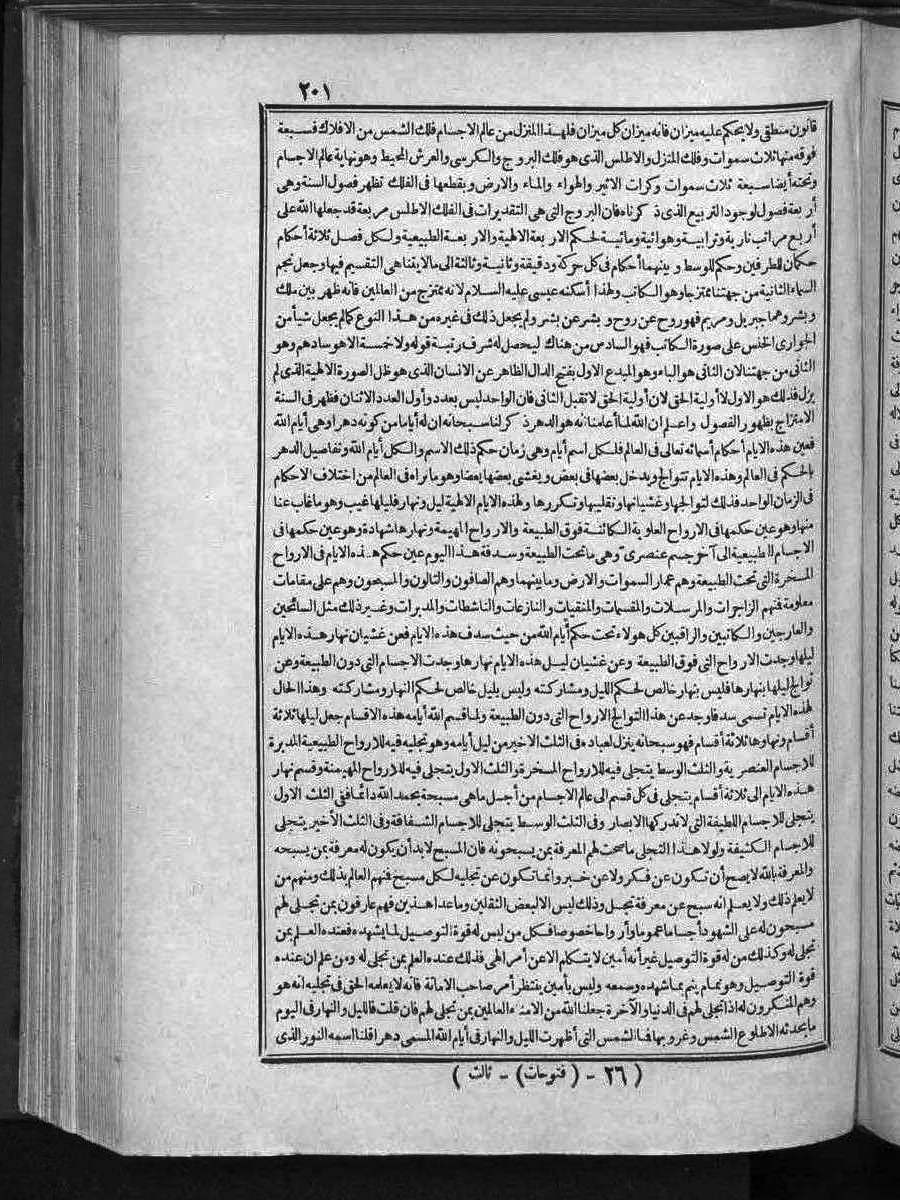 ٢٠١
قانون منطقى ولا يحكم عليه ميزان فانه ميزان كل ميزان فلهذا المنزل من عالم الاجسام فلك الشمس من الافلاك فسبعة
فوقه منها ثلاث سموات وفلك المنزل والاطلس الذى هو فلك البروج والكرسى والعرش المحيط وهو نهاية عالم الاجسام
وتحته أيضا سبعة ثلاث سموات وكرات الاثير والهواء والماء والارض وبقطعها فى الفلك تظهر فصول السنة وهى
أربعة فصول لوجود التربيع الذى ذكرناه فان البروج التى هى التقديرات فى الفلك الاطلس مربعة قد جعلها الله على
أربع مراتب نارية وترابية وهوائية ومائية لحكم الاربعة الالهية والاربعة الطبيعية ولكل فصل ثلاثة أحكام
حكمان للطرفين وحكم للوسط وبينهما أحكام فى كل حركة ودقيقة وثانية وثالثة الى ما لا يتناهى التقسيم فيها وجعل نجم
السماء الثانية من جهتنا ممتزجا وهو الكاتب ولهذا أسكنه عيسى عليه السلام لانه ممتزج من العالمين فانه ظهر بين ملك
وبشر وهما جبريل ومريم فهو روح عن روح وبشر عن بشر ولم يجعل ذلك فى غيره من هذا النوع كما لم يجعل شيأ من
الجوارى الخنس على صورة الكاتب فهو السادس من هناك ليحصل له شرف رتبة قوله ولا خمسة الا هو سادسهم وهو
الثانى من جهتنا لان الثانى هو الباء وهو المبدع الاول بفتح الدال الظاهر عن الانسان الذى هو ظل الصورة الالهية الذى لم
يزل فذلك هو الاول لا أولية الحق لان أولية الحق لا تقبل الثانى فان الواحد ليس بعدد وأول العدد الاثنان فظهر فى السنة
الامتزاج بظهور الفصول واعلم ان الله لما أعلمنا انه هو الدهر ذكر لنا سبحانه ان له أياما من كونه دهرا وهى أيام الله
فعين هذه الايام أحكام أسمائه تعالى فى العالم فلكل اسم أيام وهى زمان حكم ذلك الاسم والكل أيام الله وتفاصيل الدهر
بالحكم فى العالم وهذه الايام تتوالج ويدخل بعضها فى بعض ويغشى بعضها بعضا وهو ما نراه فى العالم من اختلاف الاحكام
فى الزمان الواحد فذلك لتوالجها وغشيانها وتقليبها وتكررها ولهذه الايام الالهية ليل ونهار فليلها غيب وهو ما غاب عنا
منها وهو عين حكمها فى الارواح العلوية الكائنة فوق الطبيعة والارواح المهيمة ونهارها شهادة وهو عين حكمها فى
الاجسام الطبيعية الى آخر جسم عنصرى وهى ما تحت الطبيعة وسدفة هذا اليوم عين حكم هذه الايام فى الارواح
المسخرة التى تحت الطبيعة وهم عمار السموات والارض وما بينهما وهم الصافون والتالون والمسبحون وهم على مقامات
معلومة فمنهم الزاجرات والمرسلات والمقسمات والمنقبات والنازعات والناشطات والمدبرات وغير ذلك مثل السائحين
والعارجين والكاتبين والراقبين كل هولاء تحت حكم أيام الله من حيث سدف هذه الايام فعن غشيان نهار هذه الايام
ليلها وجدت الارواح التى فوق الطبيعة وعن غشيان ليل هذه الايام نهارها وجدت الاجسام التى دون الطبيعة وعن
توالج ليلها بنهارها فليس بنهار خالص لحكم الليل ومشاركته وليس بليل خالص لحكم النهار ومشاركته وهذا الحال
لهذه الايام تسمى سدفا وجد عن هذا التوالج الارواح التى دون الطبيعة ولما قسم الله أيامه هذه الاقسام جعل ليلها ثلاثة
أقسام ونهارها ثلاثة أقسام فهو سبحانه ينزل لعباده فى الثلث الاخير من ليل أيامه وهو تجليه فيه للارواح الطبيعية المدبرة
للاجسام العنصرية والثلث الوسط يتجلى فيه للارواح المسخرة والثلث الاول يتجلى فيه للارواح المهيمنة وقسم نهار
هذه الايام الى ثلاثة أقسام يتجلى فى كل قسم الى عالم الاجسام من أجل ما هى مسبحة بحمد الله دائما ففى الثلث الاول
يتجلى للاجسام اللطيفة التى لا تدركها الابصار وفى الثلث الوسط يتجلى للاجسام الشفافة وفى الثلث الأخير يتجلى
للاجسام الكثيفة ولولا هذا التجلى ما صحت لهم المعرفة بمن يسبحونه فان المسبح لا بد أن يكون له معرفة بمن يسبحه
والمعرفة بالله لا يصح أن تكون عن فكر ولا عن خبر وانما تكون عن تجليه لكل مسبح فمنهم العالم بذلك ومنهم من
لا يعلم ذلك ولا يعلم انه سبح عن معرفة تجل وذلك ليس الا لبعض الثقلين وما عدا هذين فهم عارفون بمن تجلى لهم
مسبحون له على الشهود أجساما عموما وأرواحا خصوصا فكل من ليس له قوة التوصيل لما يشهده فعنده العلم بمن
تجلى له وكذلك من له قوة التوصيل غير أنه أمين لا يتكلم الا عن أمر الهى فذلك عنده العلم بمن تجلى له ومن علم ان عنده
قوة التوصيل وهو نمام ينم بما شهده وسمعه وليس بأمين ينتظر أمر صاحب الامانة فانه لا يعلمه الحق فى تجليه انه هو
وهم المنكرون له اذا تجلى لهم فى الدنيا والآخرة جعلنا الله من الامناء العالمين بمن تجلى لهم فان قلت فالليل والنهار فى اليوم
ما يحدثه الا طلوع الشمس وغروبها فما الشمس التى أظهرت الليل والنهار فى أيام الله المسمى دهرا قلنا اسمه النور الذى
( ٢٦ - ( فتوحات ) - ثالث )